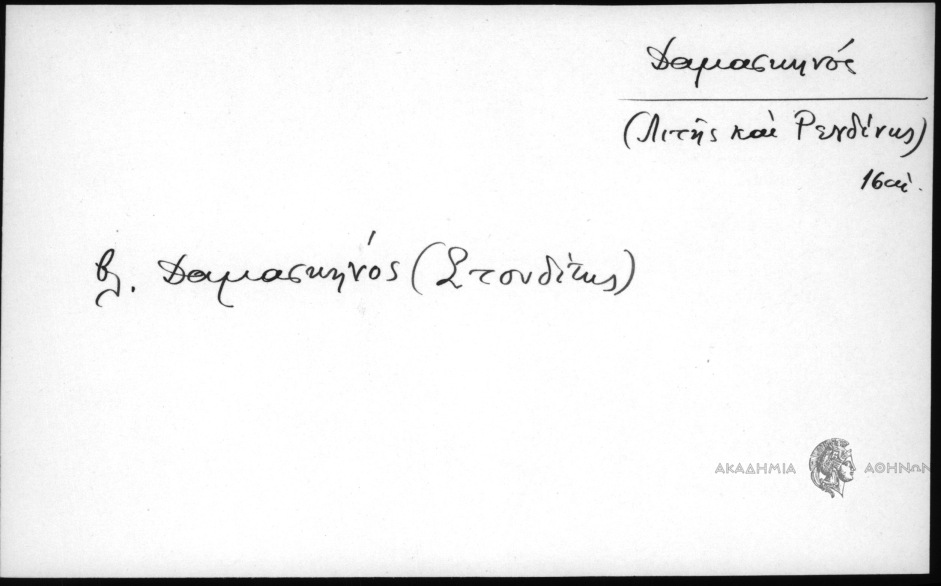 Δαμασκηνός
(Λιτῆς καὶ Ρενδίνης)
16 αἰ.
βλ. Δαμασκηνός (Στουδίτης)
ΑΚΑΔΗΜΙΑ ΑΘΗΝΩΝ